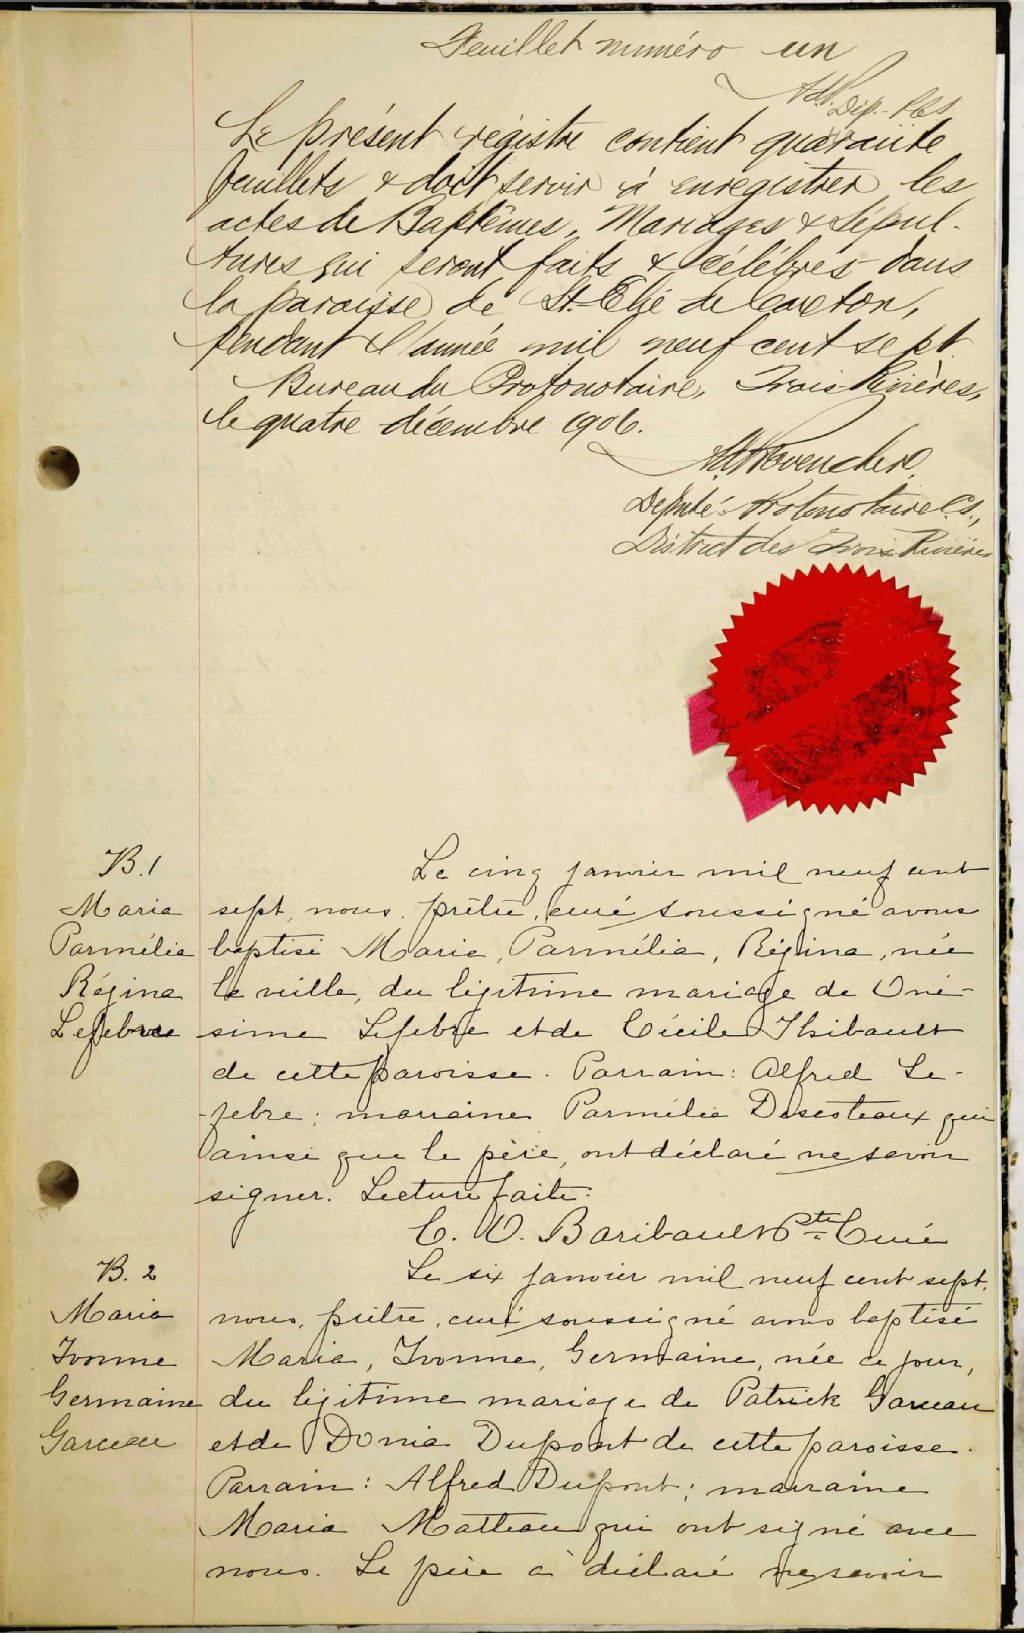 Feuillet numéro un
Dép.-
Le présent régistre contient quarante
feuillets & doit servir à enregistrer les
actes de Baptêmes, Mariages & Sépul-
tures qui seront faits & célébrés dans
la paroisse de St. Elie de Caxton,
pendant l'année mil neuf cent sept.
Bureau du Protonotaire, Trois Rivières,
le quatre décembre 1906.
Ad. Provencher,
Député-Protonotaire C.S.,
District des Trois Rivières
B. 1
Maria
Parmélia
Régina
Lefebvre
Le cinq janvier mil neuf cent
sept, nous, prêtre, curé soussigné avons
baptisé Marie, Parmélia, Régina, née
la veille, du légitime mariage de Oné-
sime Lefebre et de Cécile Thibault
de cette paroisse. Parrain: Alfred Le-
febre; marraine Parmélia Desesteaux qui
ainsi que le père, ont déclaré ne savoir
signer. Lecture faite.
C. O. Baribault Ptre Curé
B. 2
Maria
Ivonne
Germaine
Garceau
Le six janvier mil neuf cent sept,
nous, prêtre, curé soussigné avons baptisé
Maria, Ivonne, Germaine, née ce jour,
du légitime mariage de Patrick Garceau
et de Donia Dupont de cette paroisse.
Parrain: Alfred Dupont; marraine
Maria Matteau qui ont signé avec
nous. Le père a déclaré ne savoir